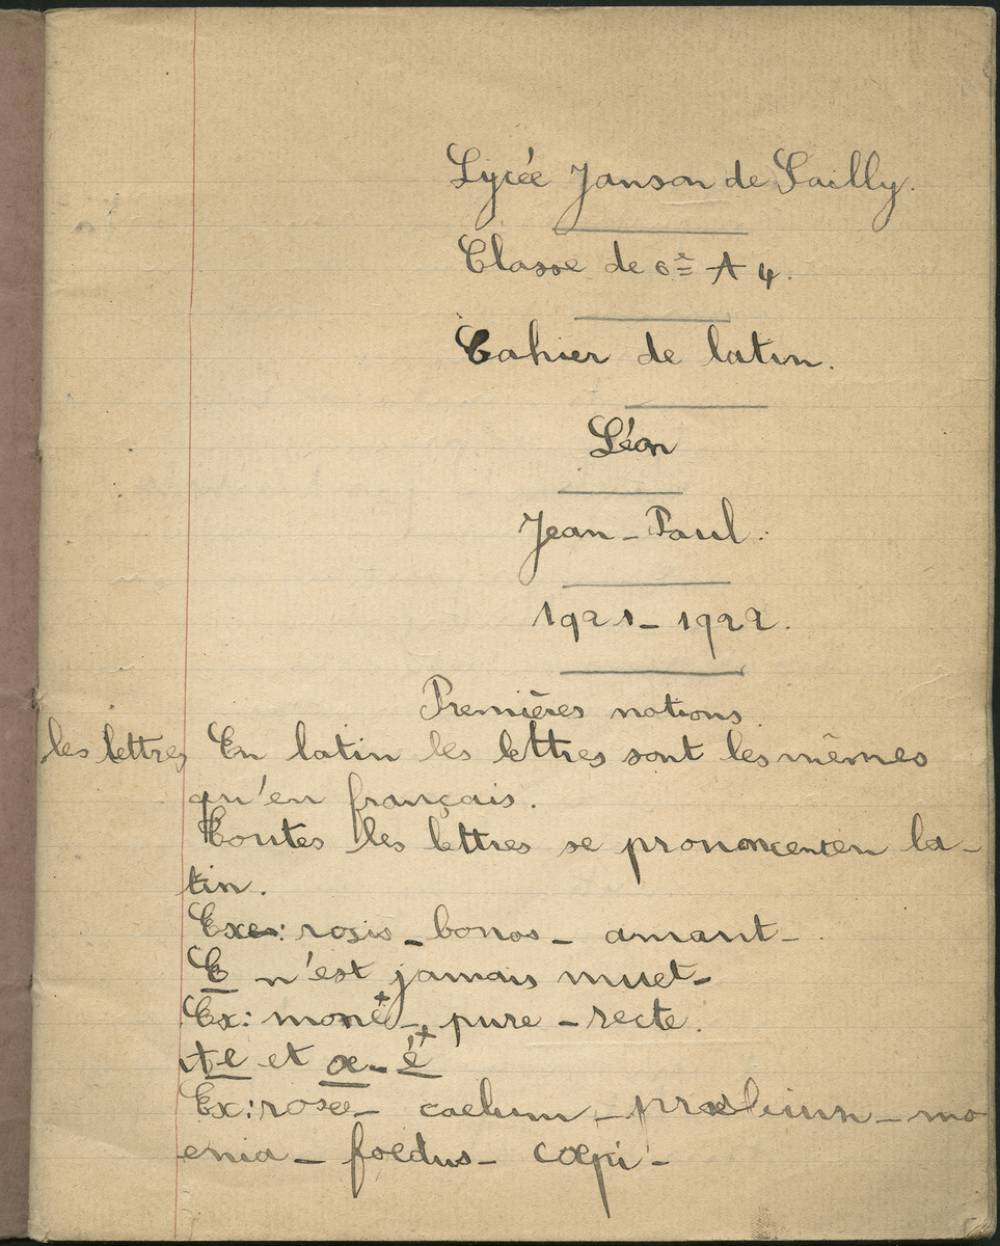 Lycée Janson de Sailly.
Classe de 6e A 4.
Cahier de latin.
Léon
Jean-Paul.
1921-1922.
Premières notions.
les lettres En latin les lettres sont les mêmes
qu'en français.
Toutes les lettres se prononcent en la-
tin.
Ex: rosis - bonos - amant -
E n'est jamais muet -
Ex: moné - pure - recte.
Ae et œ - é
Ex: rosæ - caelum - prœlium - mo
enia - foedus - cœpi -